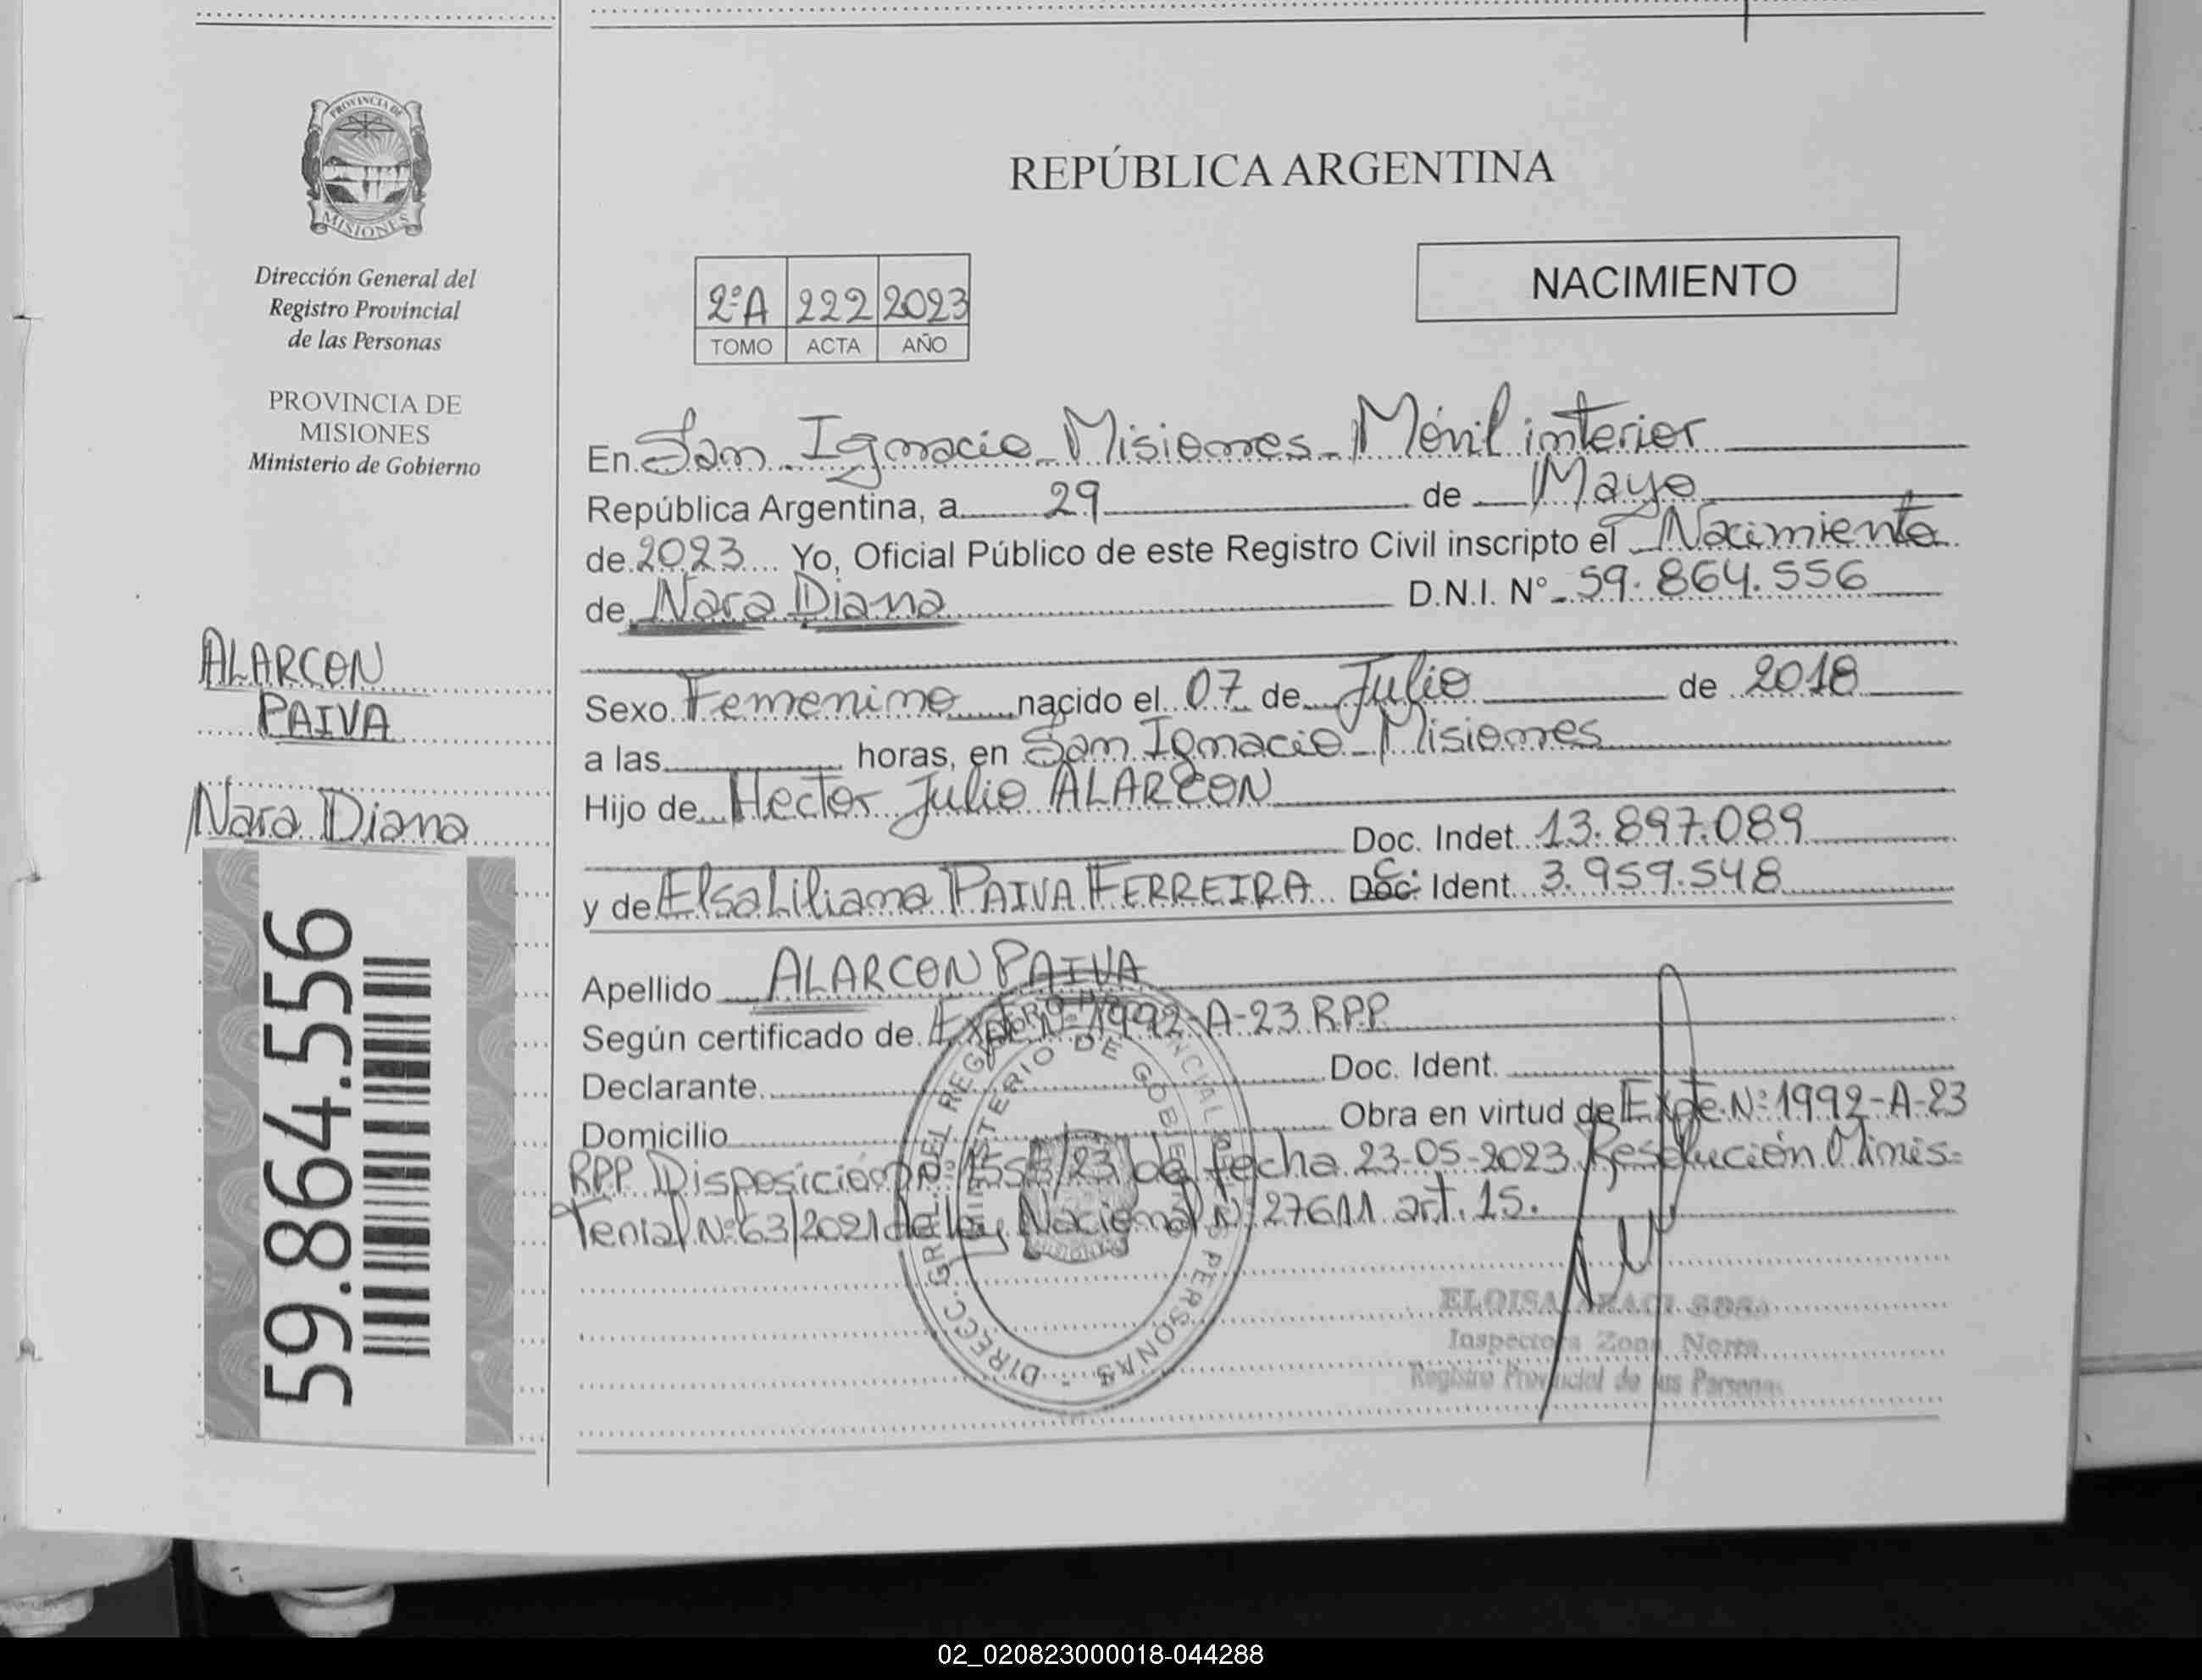 PROVINCIA DE
MISIONES
Dirección General del
Registro Provincial
de las Personas
PROVINCIA DE
MISIONES
Ministerio de Gobierno
ALARCON
PAIVA
Nara Diana
59.864.556
REPÚBLICA ARGENTINA
NACIMIENTO
2ºA 222 2023
TOMO ACTA AÑO
En San Ignacio - Misiones - Móvil interior
República Argentina, a 29 de Mayo
de 2023 Yo, Oficial Público de este Registro Civil inscripto el Nacimiento
de Nara Diana D.N.I. Nº 59.864.556
Sexo Femenino nacido el 07 de Julio de 2018
a las horas, en San Ignacio - Misiones
Hijo de Hector Julio ALARCON
Doc. Indet. 13.897.089
y de Elsa Liliana PAIVA FERREIRA Doc. Ident. 3.959.548
Apellido ALARCON PAIVA
Según certificado de Expte Nº 1992-A-23 RPP
Declarante Doc. Ident.
Domicilio Obra en virtud de Expte. Nº 1992-A-23
RPP Disposición Nº /23 de fecha 23-05-2023 Resolución Minis-
terial Nº 63/2021 de ley Nacional Nº 27611 art. 15.
DIRECC. GRAL. DEL REGISTRO PROVINCIAL DE LAS PERSONAS
MINISTERIO DE GOBIERNO
MISIONES
ELOISA ARACI SOSA
Inspectora Zona Norte
Registro Provincial de las Personas
02_020823000018-044288